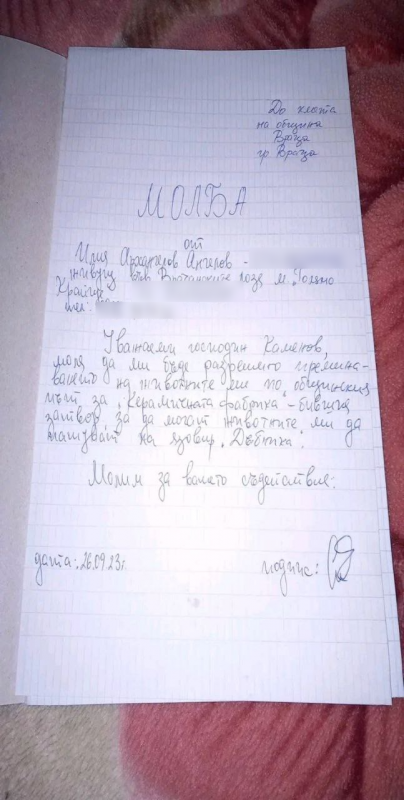 До кмета
на община
Враца
гр. Враца
МОЛБА
от
Илия Архангелов Ангелов -
живущ във Врачанските лозя м. "
Крайще
тел:
Уважаеми господин Каменов,
моля да ми бъде разрешено премина-
ването на животните ми по общинския
път за "Керамичната фабрика" - бившия
затвор, за да могат животните ми да
пашуват на язовир "Дъбника".
Молим за вашето съдействие.
дата: 26.09.23г.
подпис: